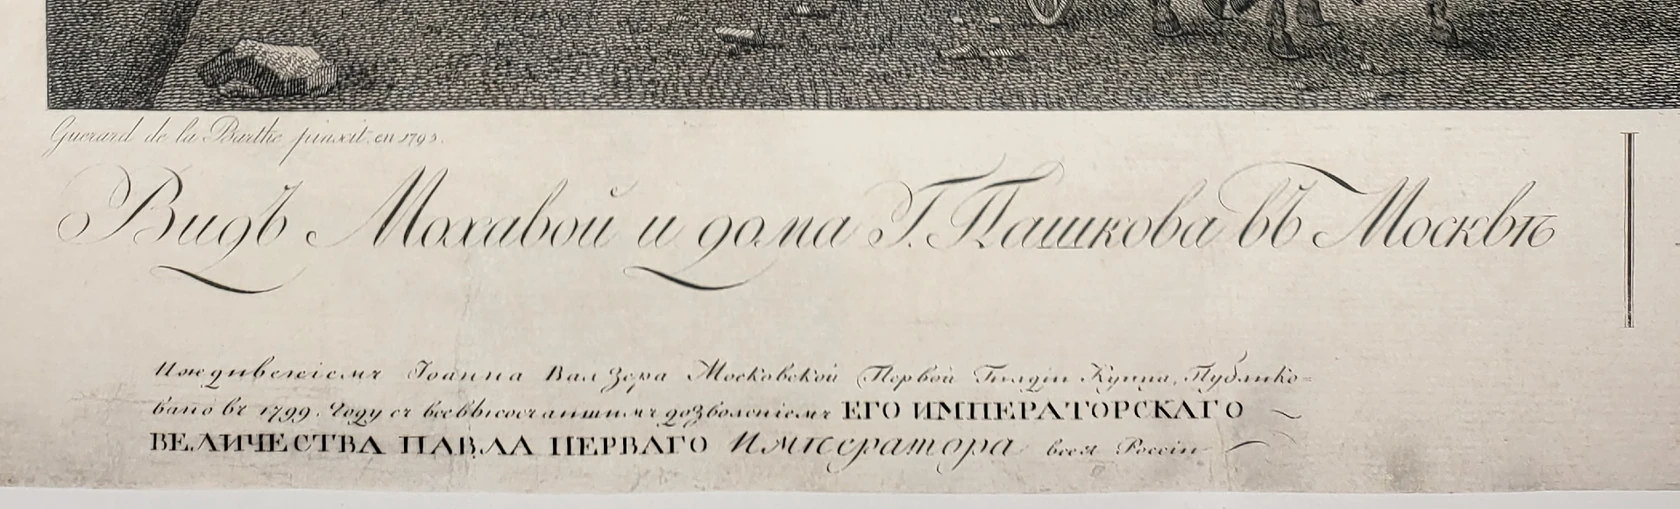 Guerard de la Barthe pinxit. en 1795.
Видъ Мохавой и дома Г. Пашкова въ Москвѣ
Иждивенiемъ Iоанна Валзера Московской Первой Гилдiи Купца, Публико=
вано въ 1799. Году съ всевысочаишимъ дозволенiемъ ЕГО ИМПЕРАТОРСКАГО
ВЕЛИЧЕСТВА ПАВЛА ПЕРВАГО Императора всея Россiи